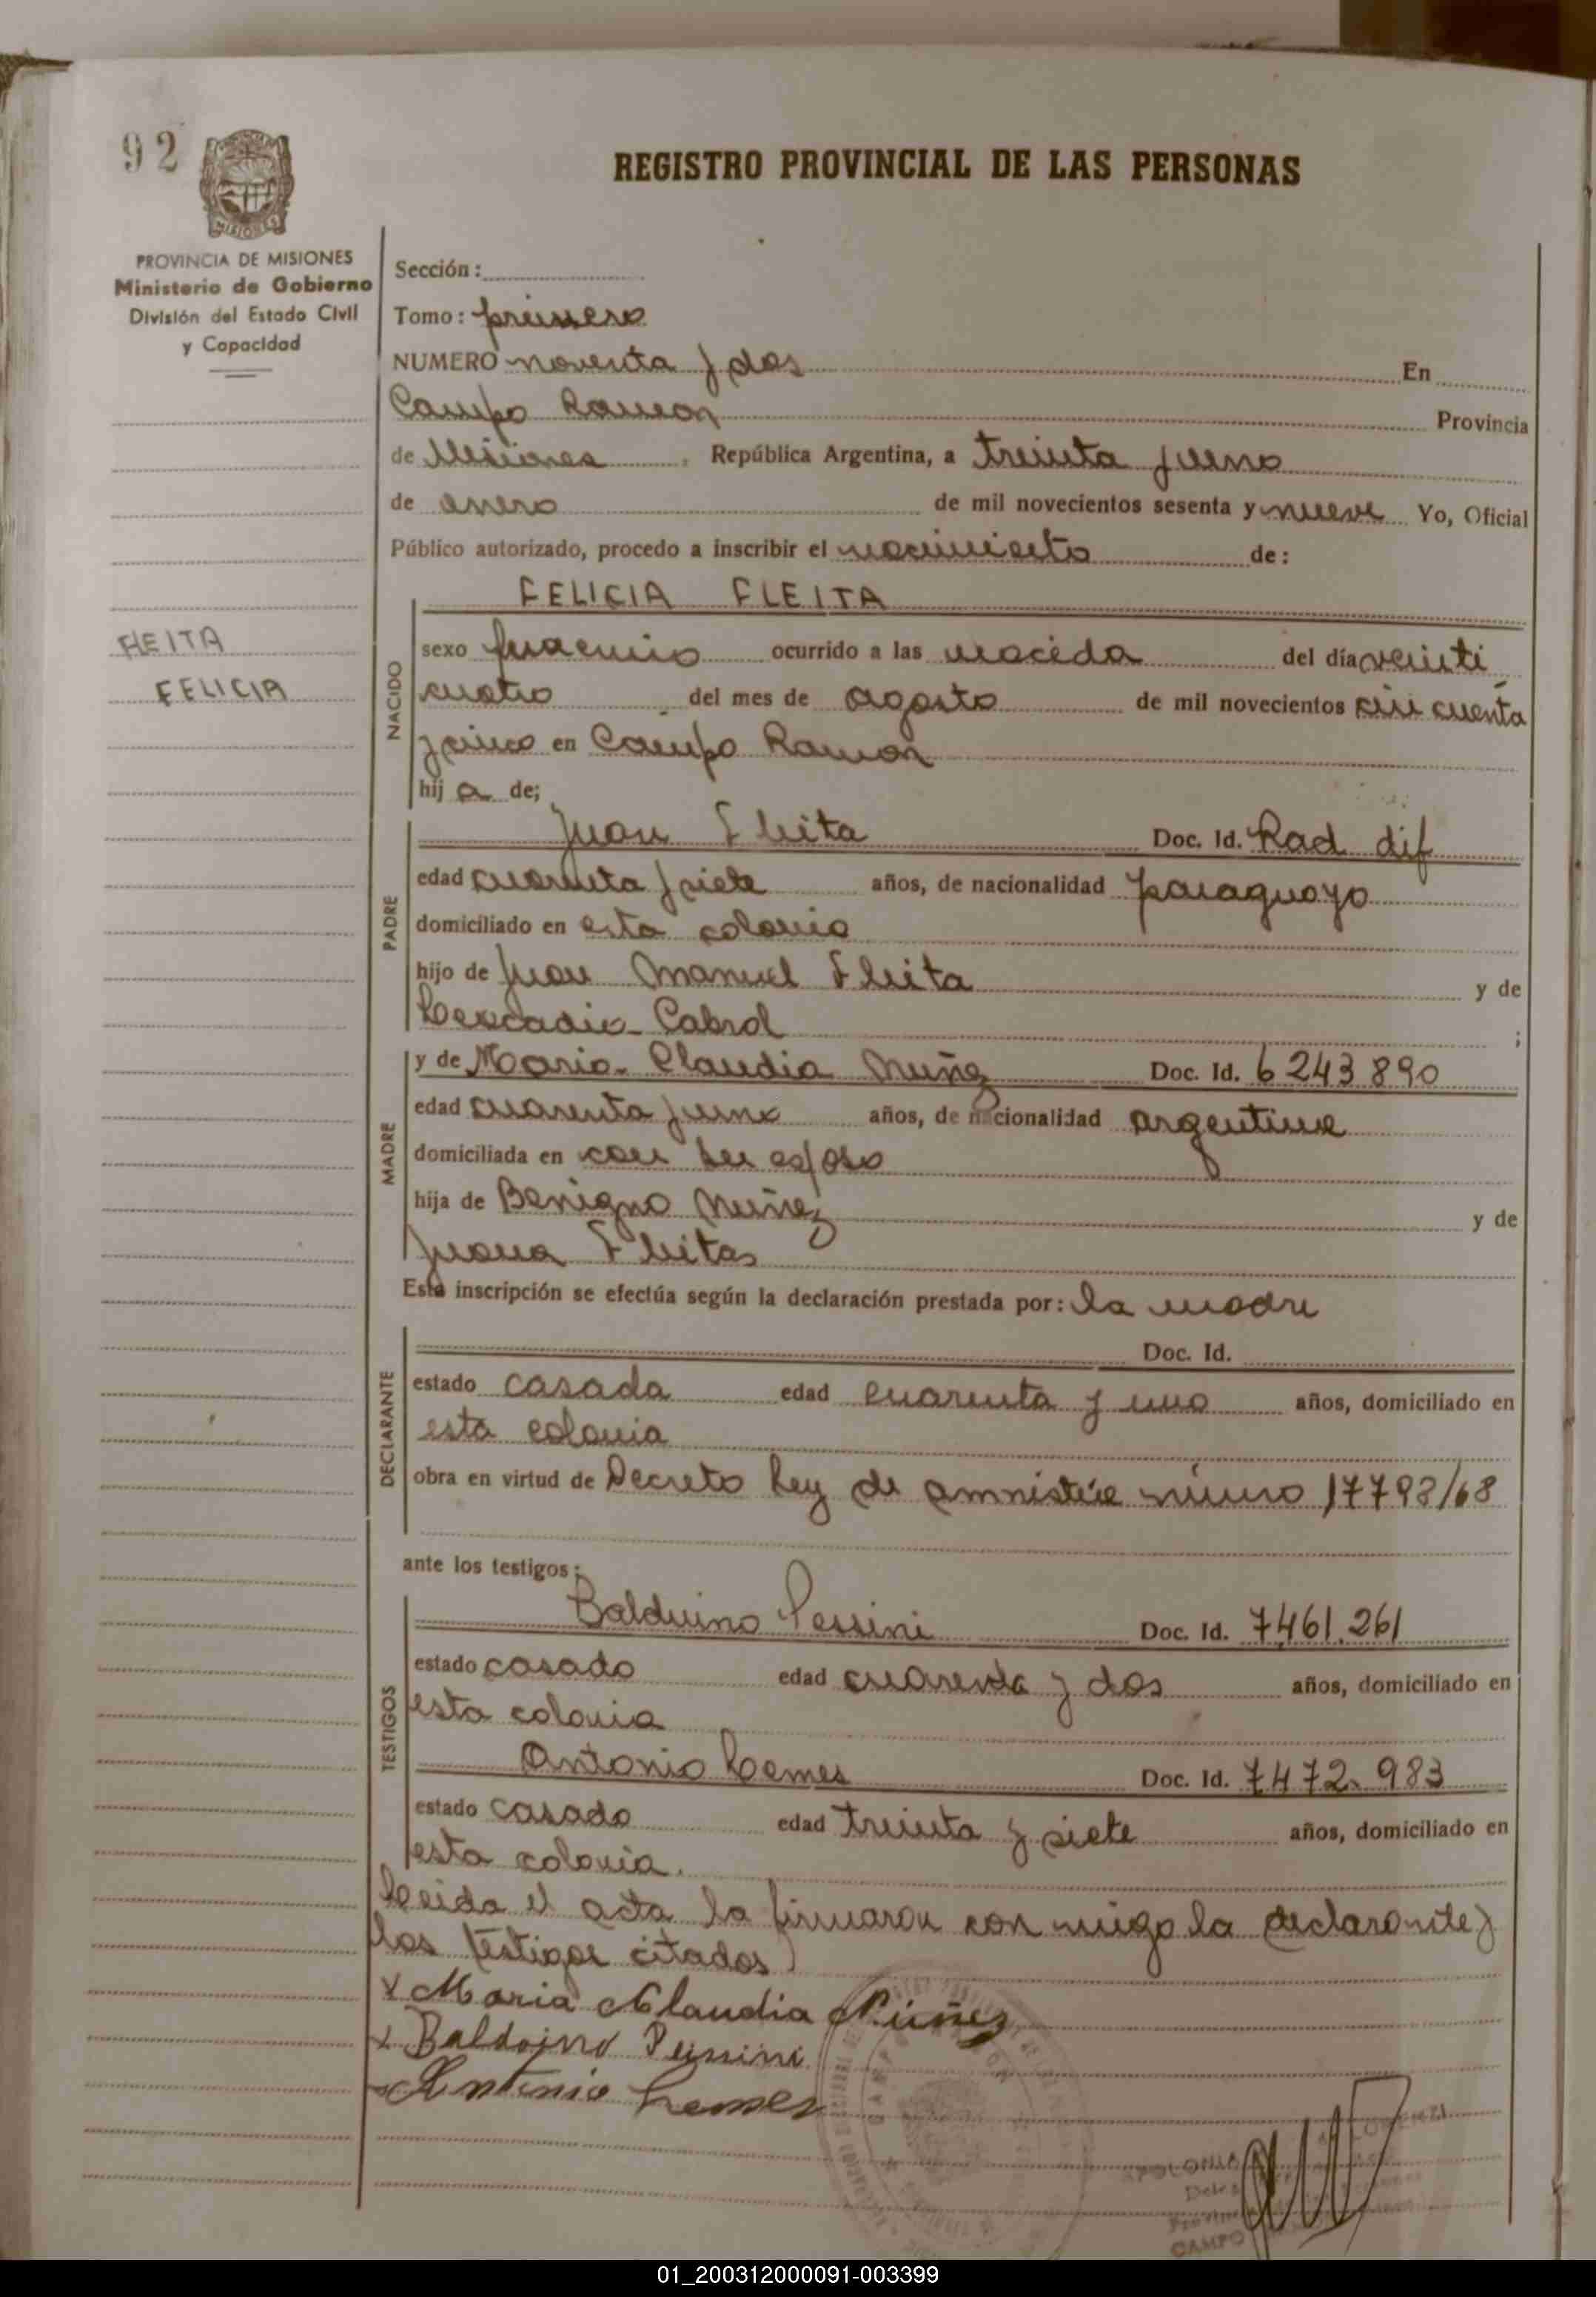 92
MISIONES
REGISTRO PROVINCIAL DE LAS PERSONAS
PROVINCIA DE MISIONES
Ministerio de Gobierno
División del Estado Civil
y Capacidad
Sección:
Tomo: primero
NUMERO noventa y dos En
Campo Ramon Provincia
de Misiones, República Argentina, a treinta y uno
de enero de mil novecientos sesenta y nueve Yo, Oficial
Público autorizado, procedo a inscribir el nacimiento de:
FELICIA FLEITA
FLEITA
FELICIA
NACIDO
sexo ocurrido a las del día veinti
cuatro del mes de agosto de mil novecientos cincuenta
y cinco en Campo Ramon
hij a de;
PADRE
Juan Fleita Doc. Id. Rad. dif
edad cuarenta y siete años, de nacionalidad paraguayo
domiciliado en esta colonia
hijo de Juan Manuel Fleita y de
Leocadia Cabral ;
MADRE
y de Maria Claudia Nuñez Doc. Id. 6243890
edad cuarenta y uno años, de nacionalidad argentina
domiciliada en con su esposo
hija de Benigno Nuñez y de
Juana Fleitas
Esta inscripción se efectúa según la declaración prestada por: la madre
DECLARANTE
Doc. Id.
estado casada edad cuarenta y uno años, domiciliado en
esta colonia
obra en virtud de Decreto Ley de amnistia número 17793/68
ante los testigos:
TESTIGOS
Balduino Pessini Doc. Id. 7461.261
estado casado edad cuarenta y dos años, domiciliado en
esta colonia
Antonio Lemes Doc. Id. 7472.983
estado casado edad treinta y siete años, domiciliado en
esta colonia.
Leida el acta la firmaron con migo la declarante y
los testigos citados
x Maria Claudia Núñez
x Baldoino Pessini
Antonio Lemes
APOLONIA
CAMPO
01_200312000091-003399